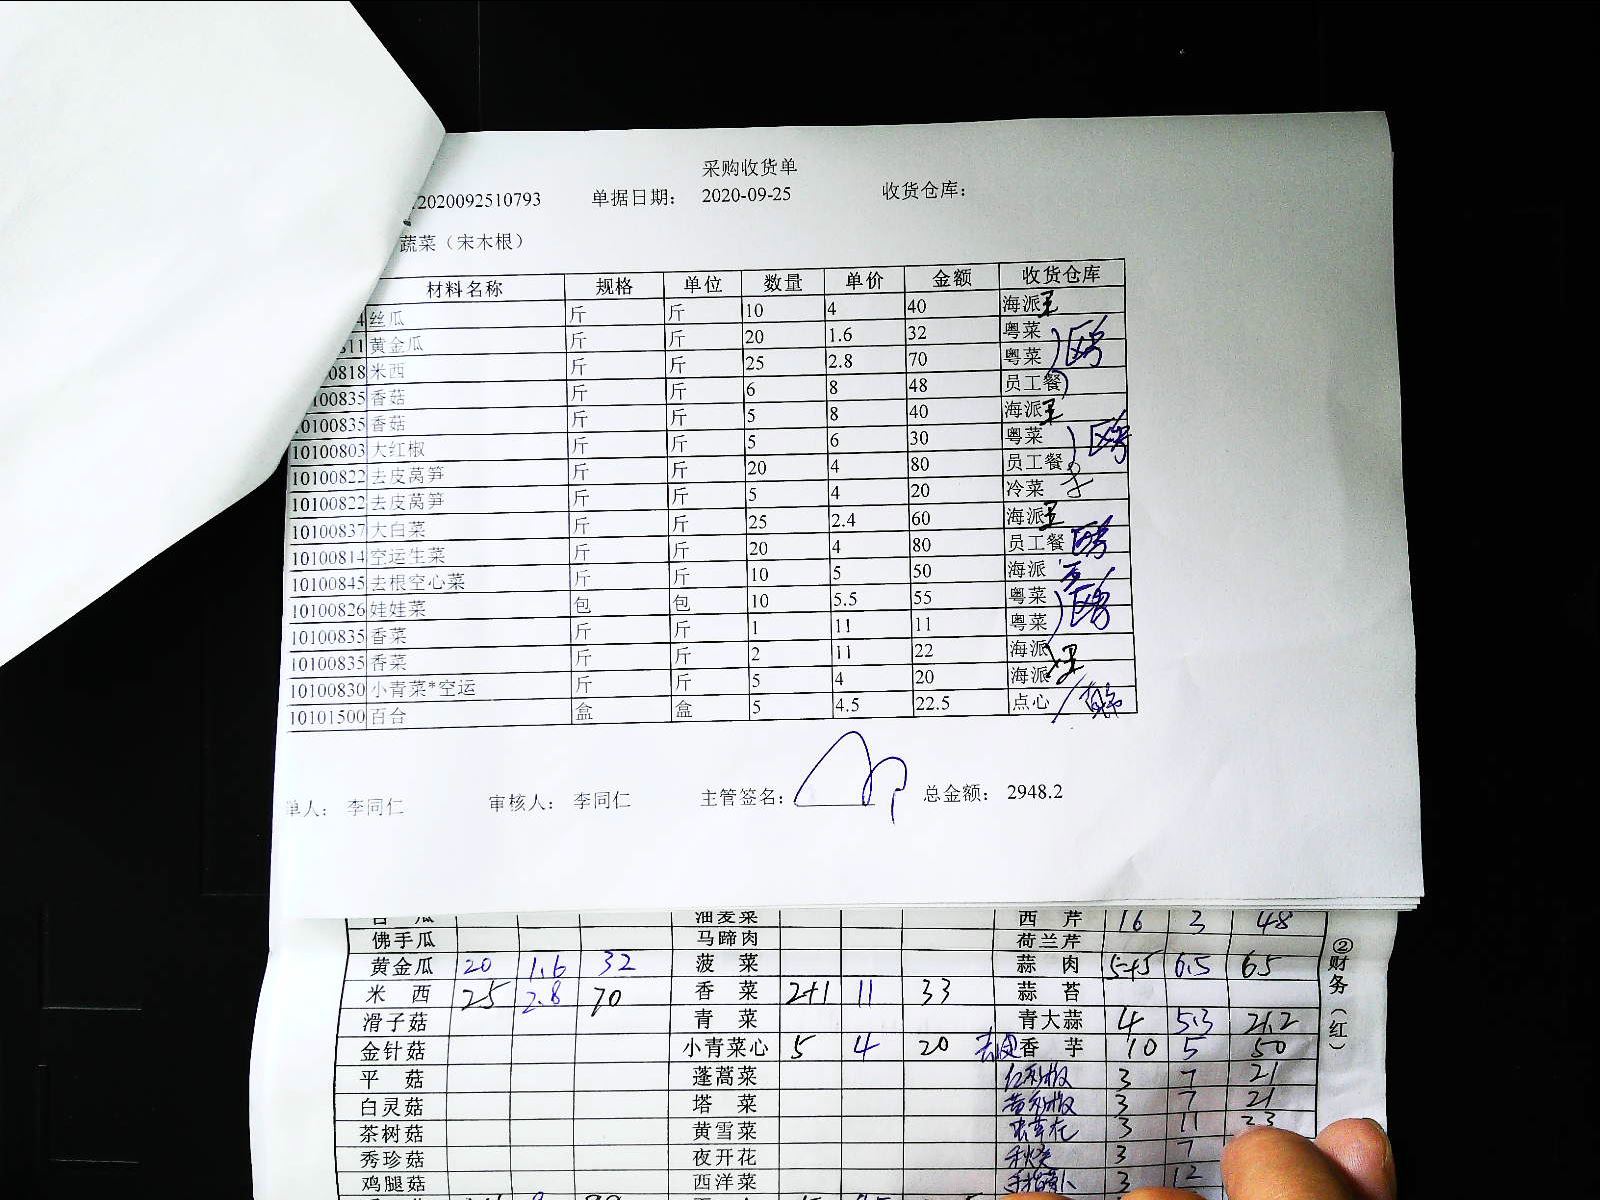 采购收货单
2020092510793 单据日期： 2020-09-25 收货仓库：
蔬菜（宋木根）
材料名称 规格 单位 数量 单价 金额 收货仓库
4 丝瓜 斤 斤 10 4 40 海派 王
811 黄金瓜 斤 斤 20 1.6 32 粤菜
0818 米西 斤 斤 25 2.8 70 粤菜
10100835 香菇 斤 斤 6 8 48 员工餐
10100835 香菇 斤 斤 5 8 40 海派 王
10100803 大红椒 斤 斤 5 6 30 粤菜
10100822 去皮莴笋 斤 斤 20 4 80 员工餐
10100822 去皮莴笋 斤 斤 5 4 20 冷菜
10100837 大白菜 斤 斤 25 2.4 60 海派 王
10100814 空运生菜 斤 斤 20 4 80 员工餐
10100845 去根空心菜 斤 斤 10 5 50 海派
10100826 娃娃菜 包 包 10 5.5 55 粤菜
10100835 香菜 斤 斤 1 11 11 粤菜
10100835 香菜 斤 斤 2 11 22 海派
10100830 小青菜*空运 斤 斤 5 4 20 海派
10101500 百合 盒 盒 5 4.5 22.5 点心
单人： 李同仁 审核人： 李同仁 主管签名： 总金额： 2948.2
瓜 油麦菜 西芹 16 3 48
佛手瓜 马蹄肉 荷兰芹
黄金瓜 20 1.6 32 菠菜 蒜肉 5+5 6.5 65
米西 25 2.8 70 香菜 2+1 11 33 蒜苔
滑子菇 青菜 青大蒜 4 5.3 21.2
金针菇 小青菜心 5 4 20 去皮香芋 10 5 50
平菇 蓬蒿菜 3 7 21
白灵菇 塔菜 3 7 21
茶树菇 黄雪菜 3 11 33
秀珍菇 夜开花 秋葵 3 7
鸡腿菇 西洋菜 手指萝卜 3 12
②财务（红）